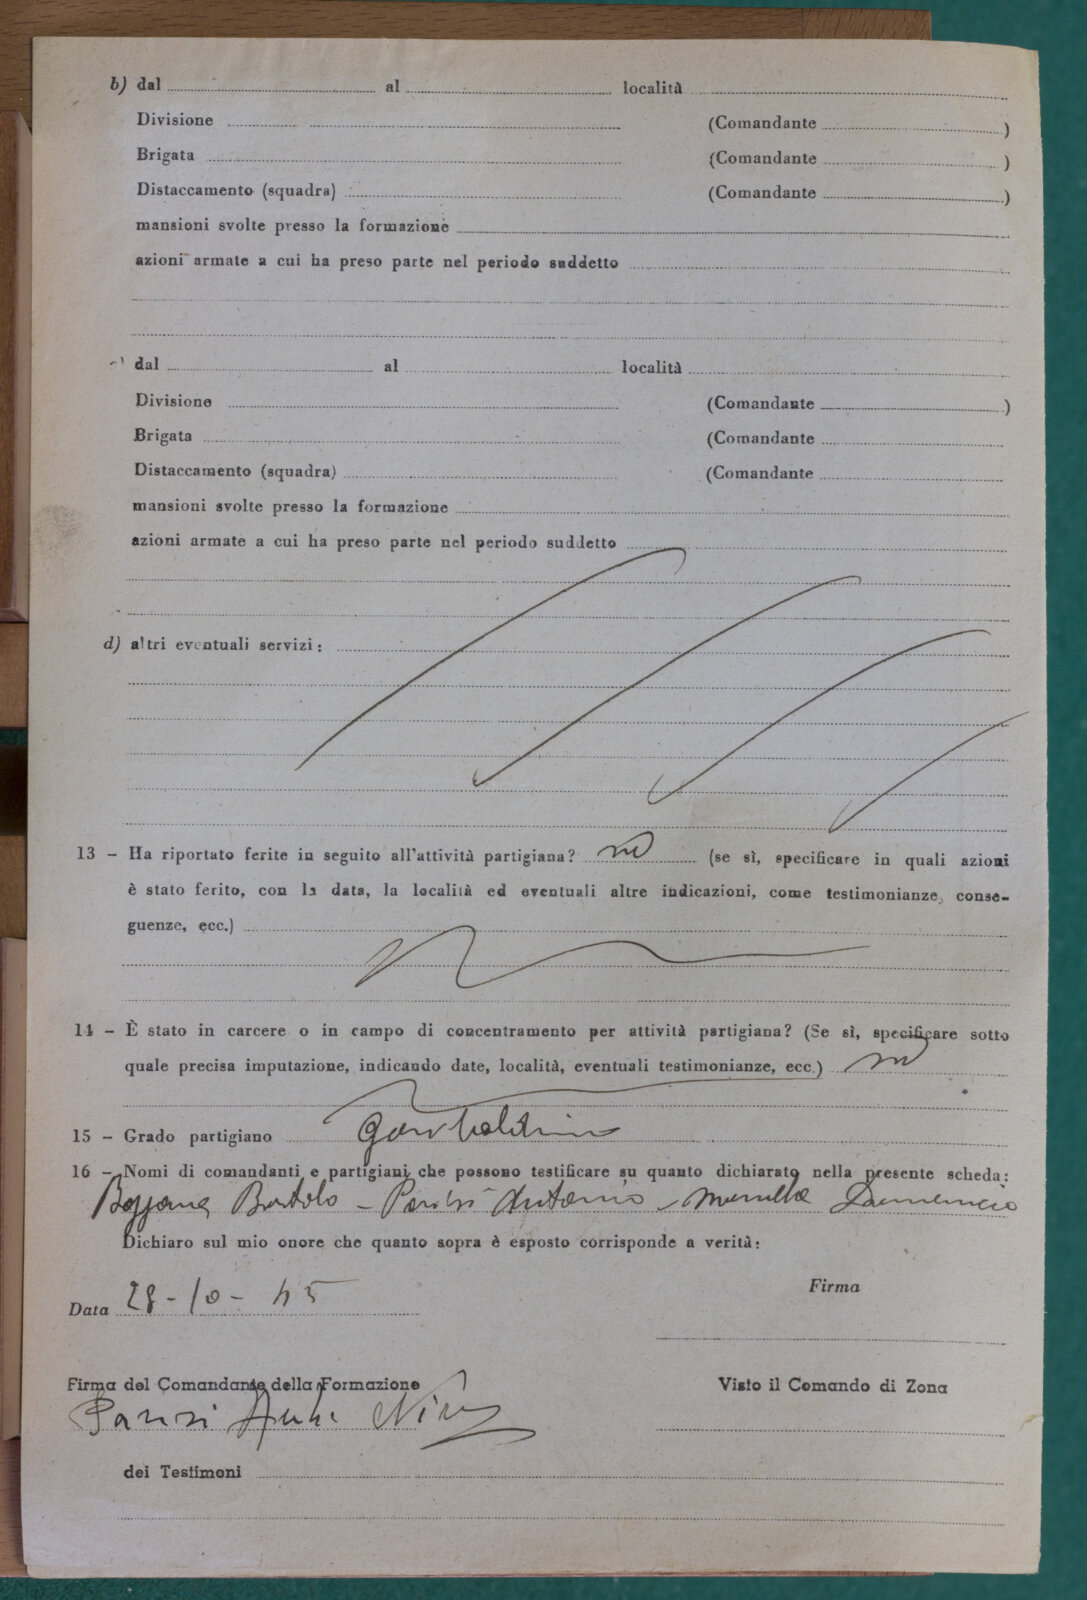 b) dal al località
Divisione (Comandante )
Brigata (Comandante )
Distaccamento (squadra) (Comandante )
mansioni svolte presso la formazione
azioni armate a cui ha preso parte nel periodo suddetto
dal al località
Divisione (Comandante )
Brigata (Comandante
Distaccamento (squadra) (Comandante
mansioni svolte presso la formazione
azioni armate a cui ha preso parte nel periodo suddetto
d) altri eventuali servizi:
13 – Ha riportato ferite in seguito all'attività partigiana? no (se sì, specificare in quali azioni
è stato ferito, con la data, la località ed eventuali altre indicazioni, come testimonianze, conse-
guenze, ecc.)
14 – È stato in carcere o in campo di concentramento per attività partigiana? (Se sì, specificare sotto
quale precisa imputazione, indicando date, località, eventuali testimonianze, ecc.) no
15 – Grado partigiano Garibaldino
16 – Nomi di comandanti e partigiani che possono testificare su quanto dichiarato nella presente scheda:
Bortolo – Parisi Antonio – Domenico
Dichiaro sul mio onore che quanto sopra è esposto corrisponde a verità:
Firma
Data 28-10-45
Firma del Comandante della Formazione Visto il Comando di Zona
Parisi
dei Testimoni